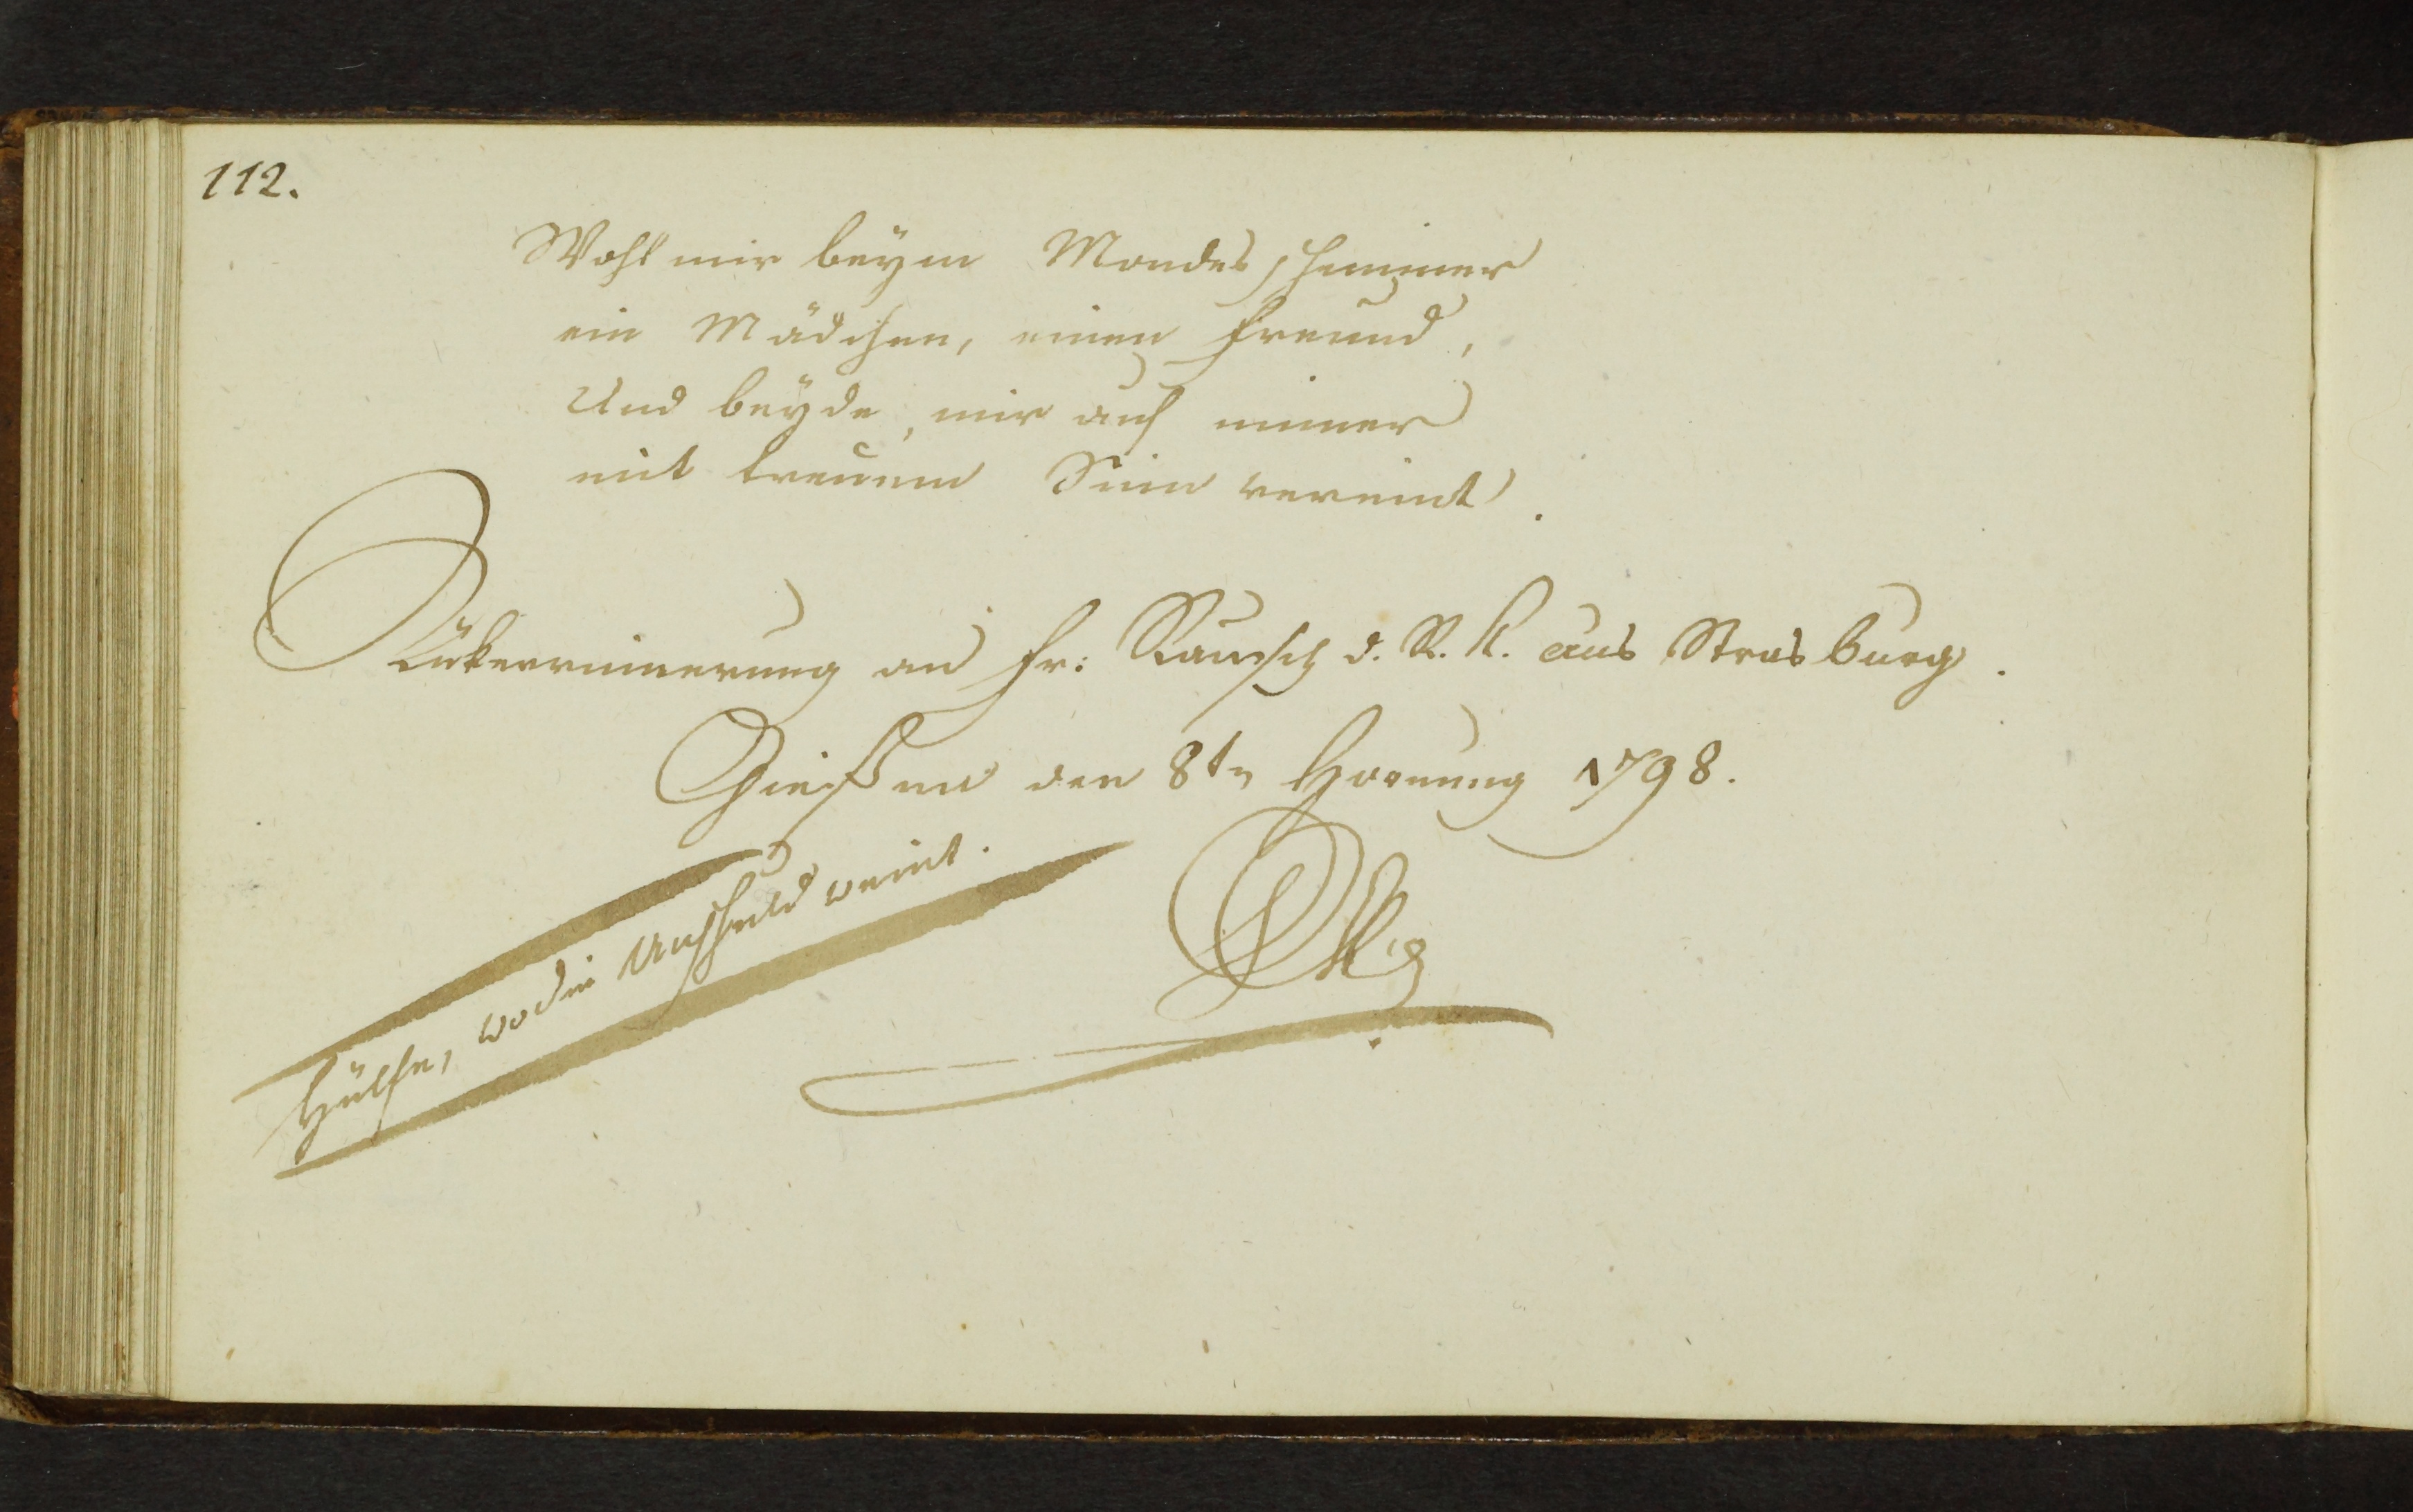 112.
Wohl mir beym Mondesschimmer
ein Mädchen, einen Freund,
Und beyde, mir auf immer
mit treuem Sinn vereint.
Rückerinnerung an Fr: Rausch d. R. K. aus Strasburg.
Gießen den 8tn Hornung 1798.
Hülfe, wo die Unschuld weint.